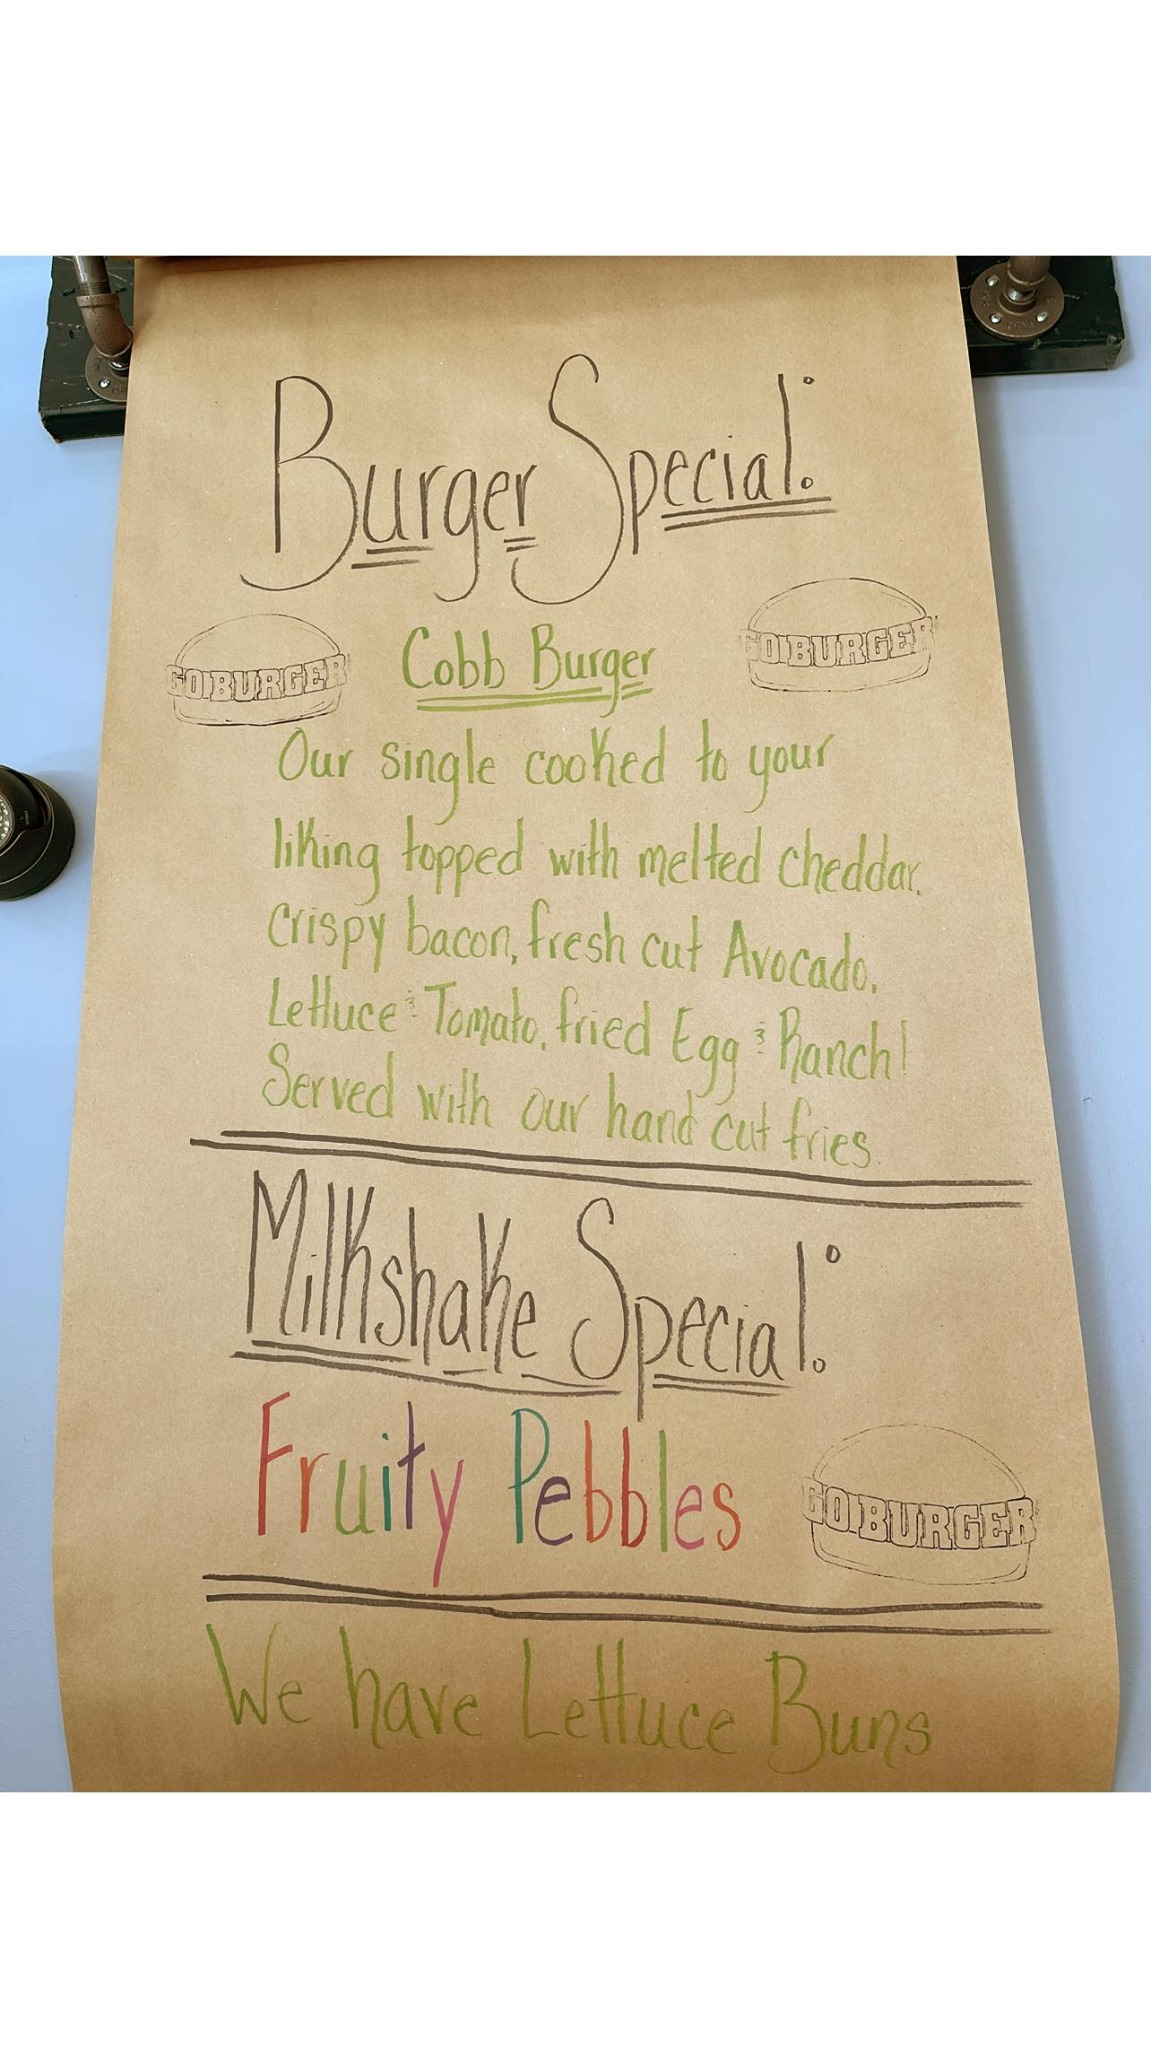 Burger Special:
GOBURGER
Cobb Burger
GOBURGER
Our single cooked to your
liking topped with melted cheddar,
crispy bacon, fresh cut Avocado,
Lettuce & Tomato, fried Egg & Ranch!
Served with our hand cut fries.
Milkshake Special:
Fruity Pebbles
GOBURGER
We have Lettuce Buns